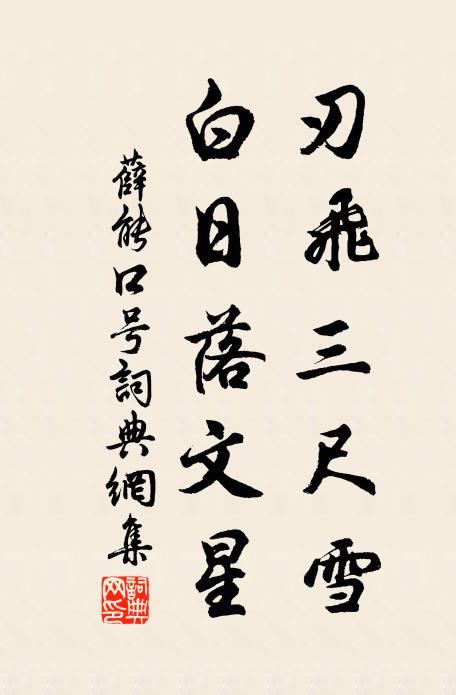 刃飛三尺雪
白日落文星
薛能口号詞典網集
詞典网印